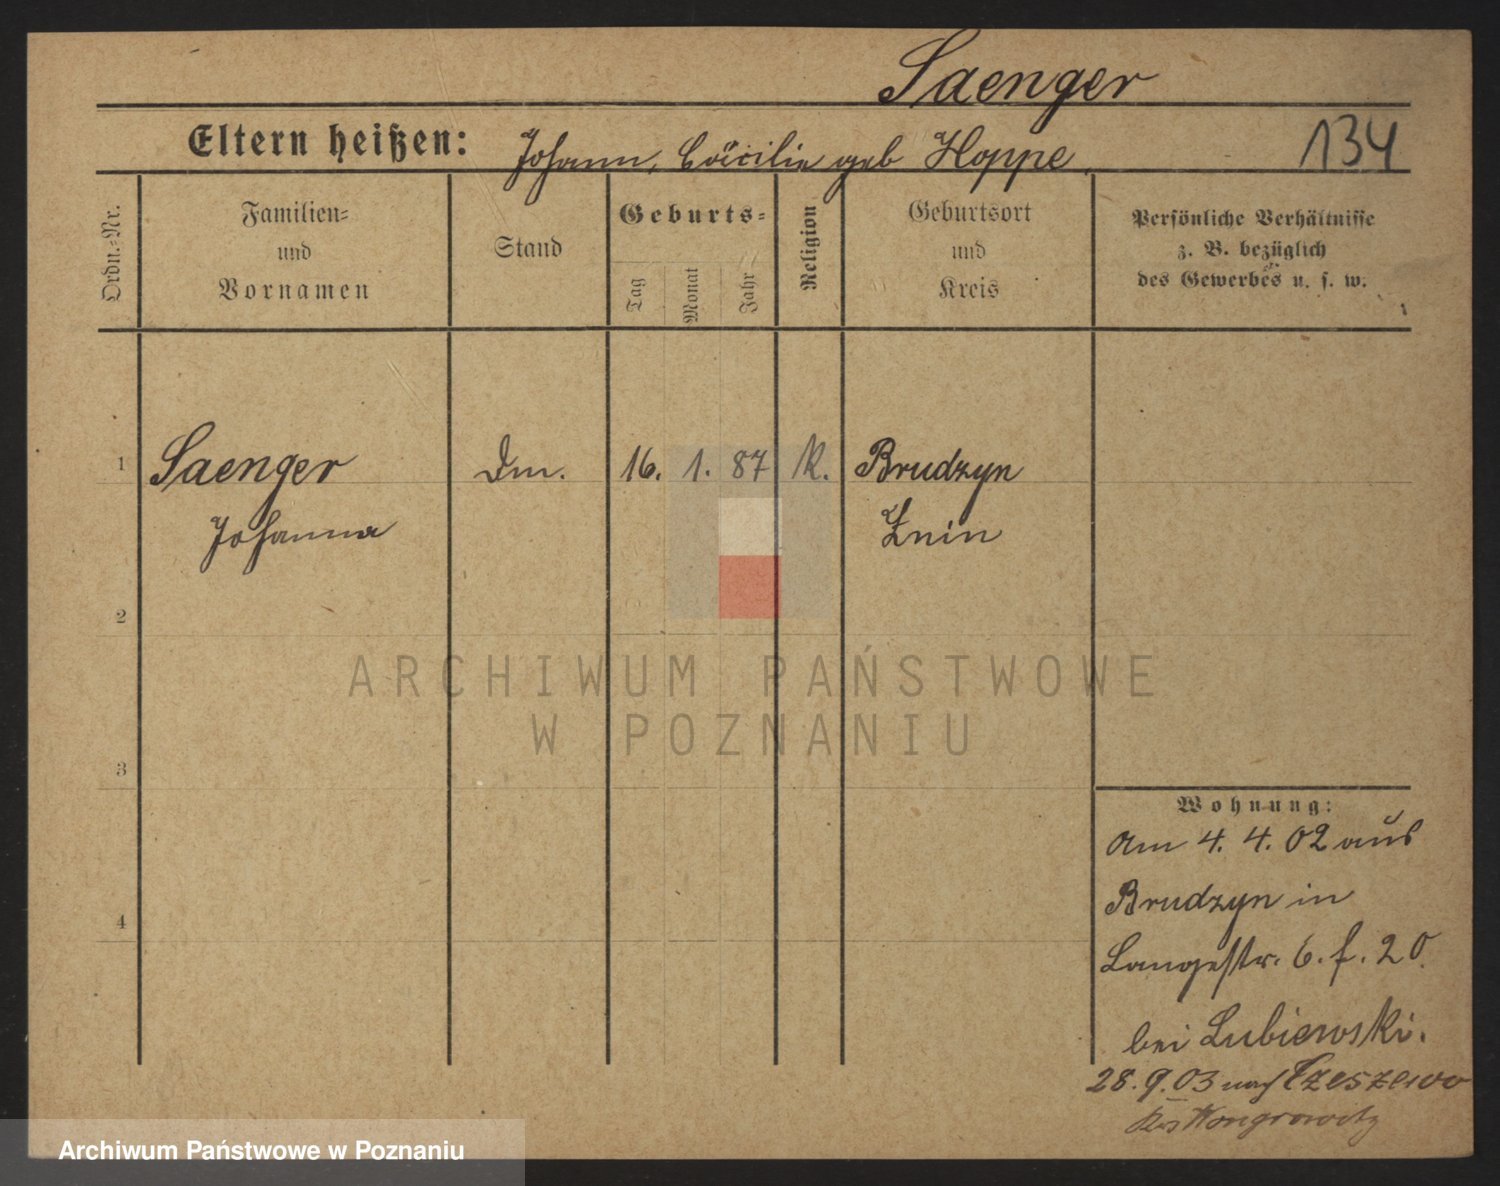 Saenger
Eltern heißen: Johann, Cäcilie geb Hoppe
134
Ordn.=Nr.
Familien=
und
Vornamen
Stand
Geburts=
Tag
Monat
Jahr
Religion
Geburtsort
und
Kreis
Persönliche Verhältnisse
z. B. bezüglich
des Gewerbes u. s. w.
1 Saenger Dm. 16. 1. 87 K. Brudzyn
Johanna Znin
2
3
4
ARCHIWUM PAŃSTWOWE
W POZNANIU
Wohnung:
Am 4. 4. 02 aus
Brudzyn in
Langestr. 6. f. 20.
bei Lubiewski.
28. 9. 03 nach Czeszewo
Krs Wongrowitz
Archiwum Państwowe w Poznaniu